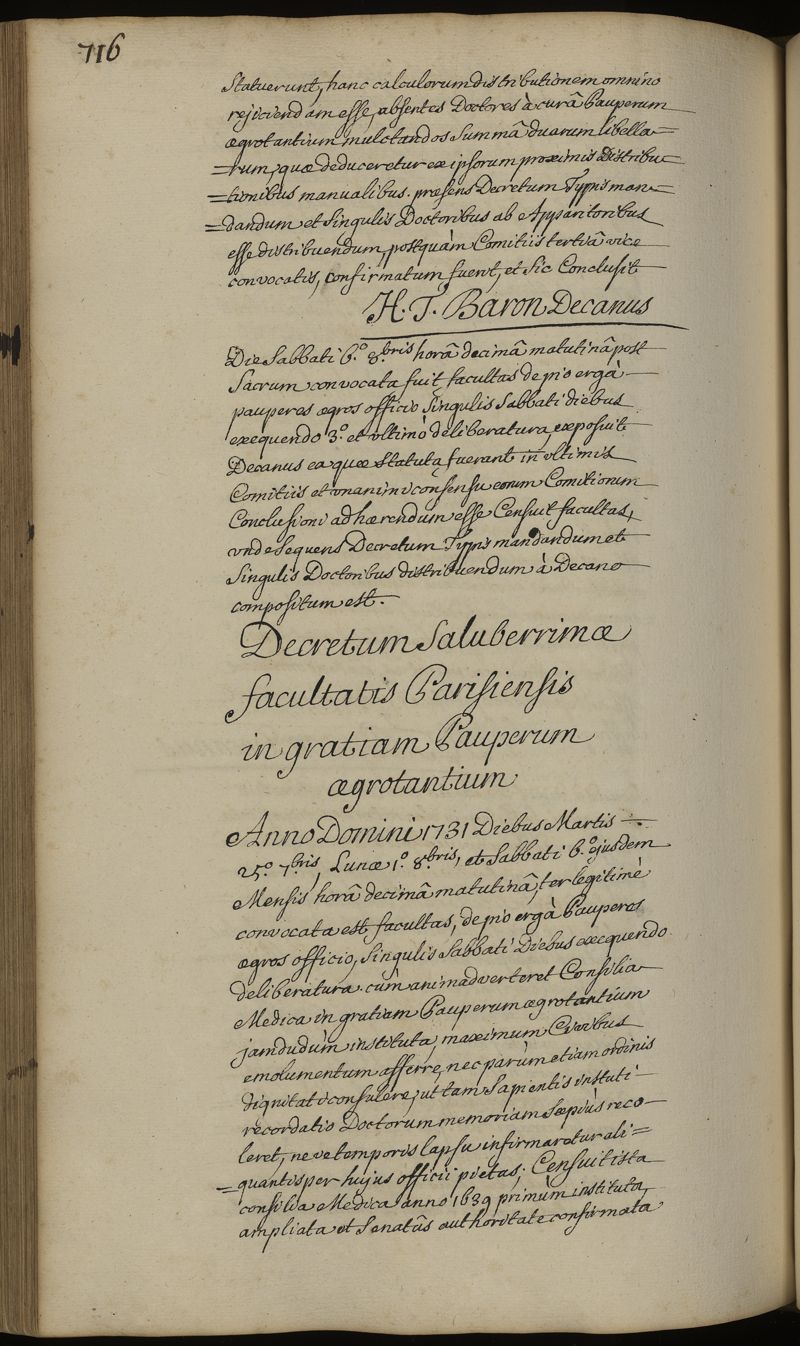 716
Statuerunt, hanc calculorum distributionem omnino
rejiciendam esse, absentes Doctores à curâ Pauperum
ægrotantium mulctandos Summâ duarum libella=
=rum, quæ deduceretur ex ipsorum proximis Distribu=
=tionibus manualibus. præsens Decretum Typis man=
=dandum et Singulis Doctoribus ab Apparitoribus
esse distribuendum, postquàm Comitiis tertiâ vice
convocatis, Confirmatum fuerit, et Sic Conclusit
H. T. Baron Decanus
Die Sabbati 6.º 8.bris horâ decimâ matutinâ post
Sacrum convocata fuit facultas de pio ergà
pauperes ægros officio Singulis Sabbati diebus
exequendo 3.º et ultimò deliberatura, exposuit
Decanus ea quæ Statuta fuerant in ultimis
Comitiis et unanimi consensu eorum Comitiorum
Conclusioni adhærendum esse Censuit facultas,
unde Sequens Decretum Typis mandandum et
Singulis Doctoribus distribuendum à Decano
compositum est.
Decretum Saluberrimæ
facultatis Parisiensis
in gratiam Pauperum
ægrotantium
Anno Domini 1731 Diebus Martis
25.º 7.bris, Lunæ 1.º 8.bris, et Sabbati 6.º ejusdem
Mensis horâ decimâ matutinâ, ter legitimè
convocata est facultas, de pio ergà Pauperes
ægros officio, Singulis Sabbati Diebus execquendo
deliberatura. cùm animadverteret Consilia
Medica in gratiam Pauperum ægrotantium
jamdudùm instituta, maximum Civibus
emolumentum afferre, nec parùm etiam ordinis
dignitati consulere, ut tam Sapientis instuti-
recordatio Doctorum memoriam Sæpiùs reco-
leret, neve temporis lapsu infirmaretur ali=
=quantisper hujus officii pietas; Censuit ista
consilia Medica anno 1639 primùm instituta,
ampliata et Senatûs authoritate confirmata